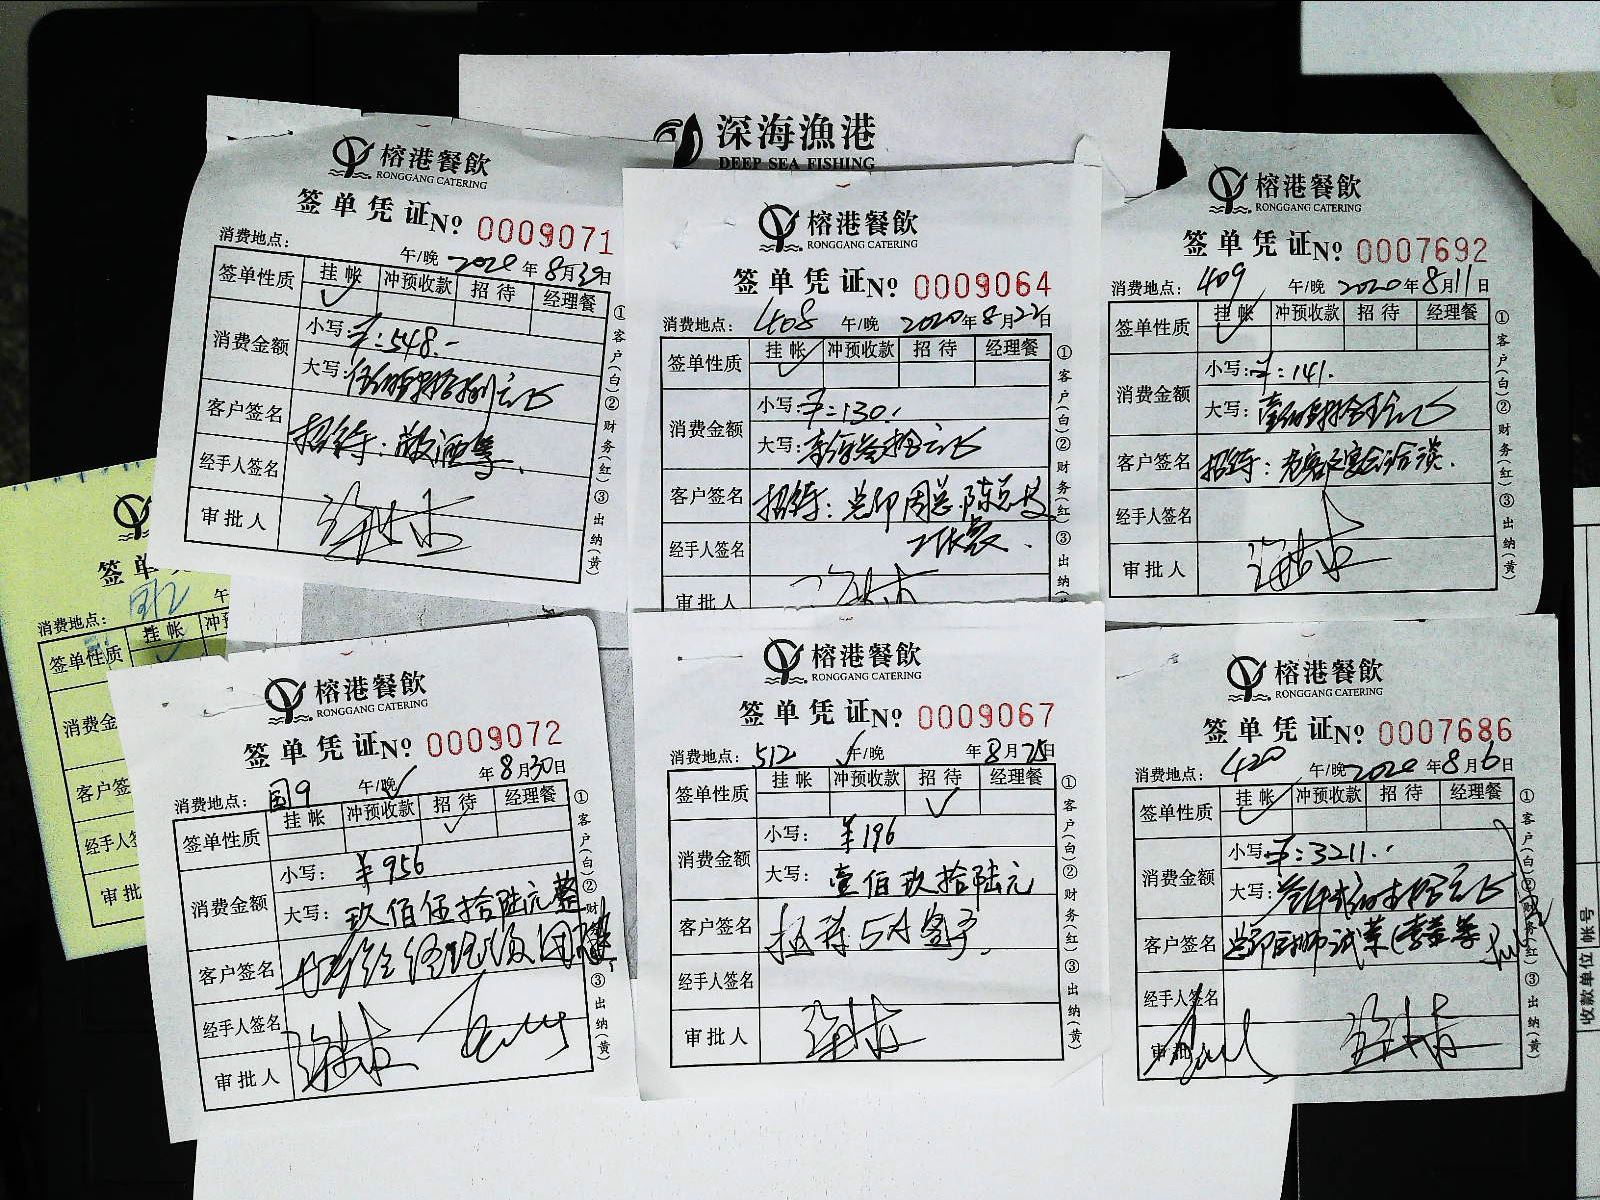 深海漁港
DEEP SEA FISHING
榕港餐飲
RONGGANG CATERING
签单凭证 No 0009071
消费地点: 午/晚 2020年8月30日
签单性质 挂帐 冲预收款 招待 经理餐
消费金额 小写: ¥:548.-
大写: 伍佰肆拾捌元正
客户签名 招待:
经手人签名
审批人
①客户(白)②财务(红)③出纳(黄)
榕港餐飲
RONGGANG CATERING
签单凭证 No 0009064
消费地点: 408 午/晚 2020年8月22日
签单性质 挂帐 冲预收款 招待 经理餐
消费金额 小写: ¥:130.
大写: 壹佰叁拾元正
客户签名 招待: 总印周总.陈总及
经手人签名
审批人
①客户(白)②财务(红)③出纳
榕港餐飲
RONGGANG CATERING
签单凭证 No 0007692
消费地点: 409 午/晚 2020年8月11日
签单性质 挂帐 冲预收款 招待 经理餐
消费金额 小写: ¥:141.
大写: 壹佰肆拾壹元正
客户签名 招待: 洽谈.
经手人签名
审批人
①客户(白)②财务(红)③出纳(黄)
签单
消费地点: 午
签单性质 挂帐 冲预
消费金
客户签
经手人签
审批
榕港餐飲
RONGGANG CATERING
签单凭证 No 0009072
消费地点: 国9 午/晚 年8月30日
签单性质 挂帐 冲预收款 招待 经理餐
消费金额 小写: ¥956
大写: 玖佰伍拾陆元整
客户签名
经手人签名
审批人
①客户(白)②财务(红)③出纳(黄)
榕港餐飲
RONGGANG CATERING
签单凭证 No 0009067
消费地点: 512 午/晚 年8月25日
签单性质 挂帐 冲预收款 招待 经理餐
消费金额 小写: ¥196
大写: 壹佰玖拾陆元
客户签名 招待5A客户.
经手人签名
审批人
①客户(白)②财务(红)③出纳(黄)
榕港餐飲
RONGGANG CATERING
签单凭证 No 0007686
消费地点: 420 午/晚 2020年8月6日
签单性质 挂帐 冲预收款 招待 经理餐
消费金额 小写: ¥:3211.-
大写: 叁仟贰佰壹拾壹元正
客户签名 总印厨师试菜(李董等
经手人签名
审批
①客户(白)②财务(红)③出纳(黄)
收款单位 帐号